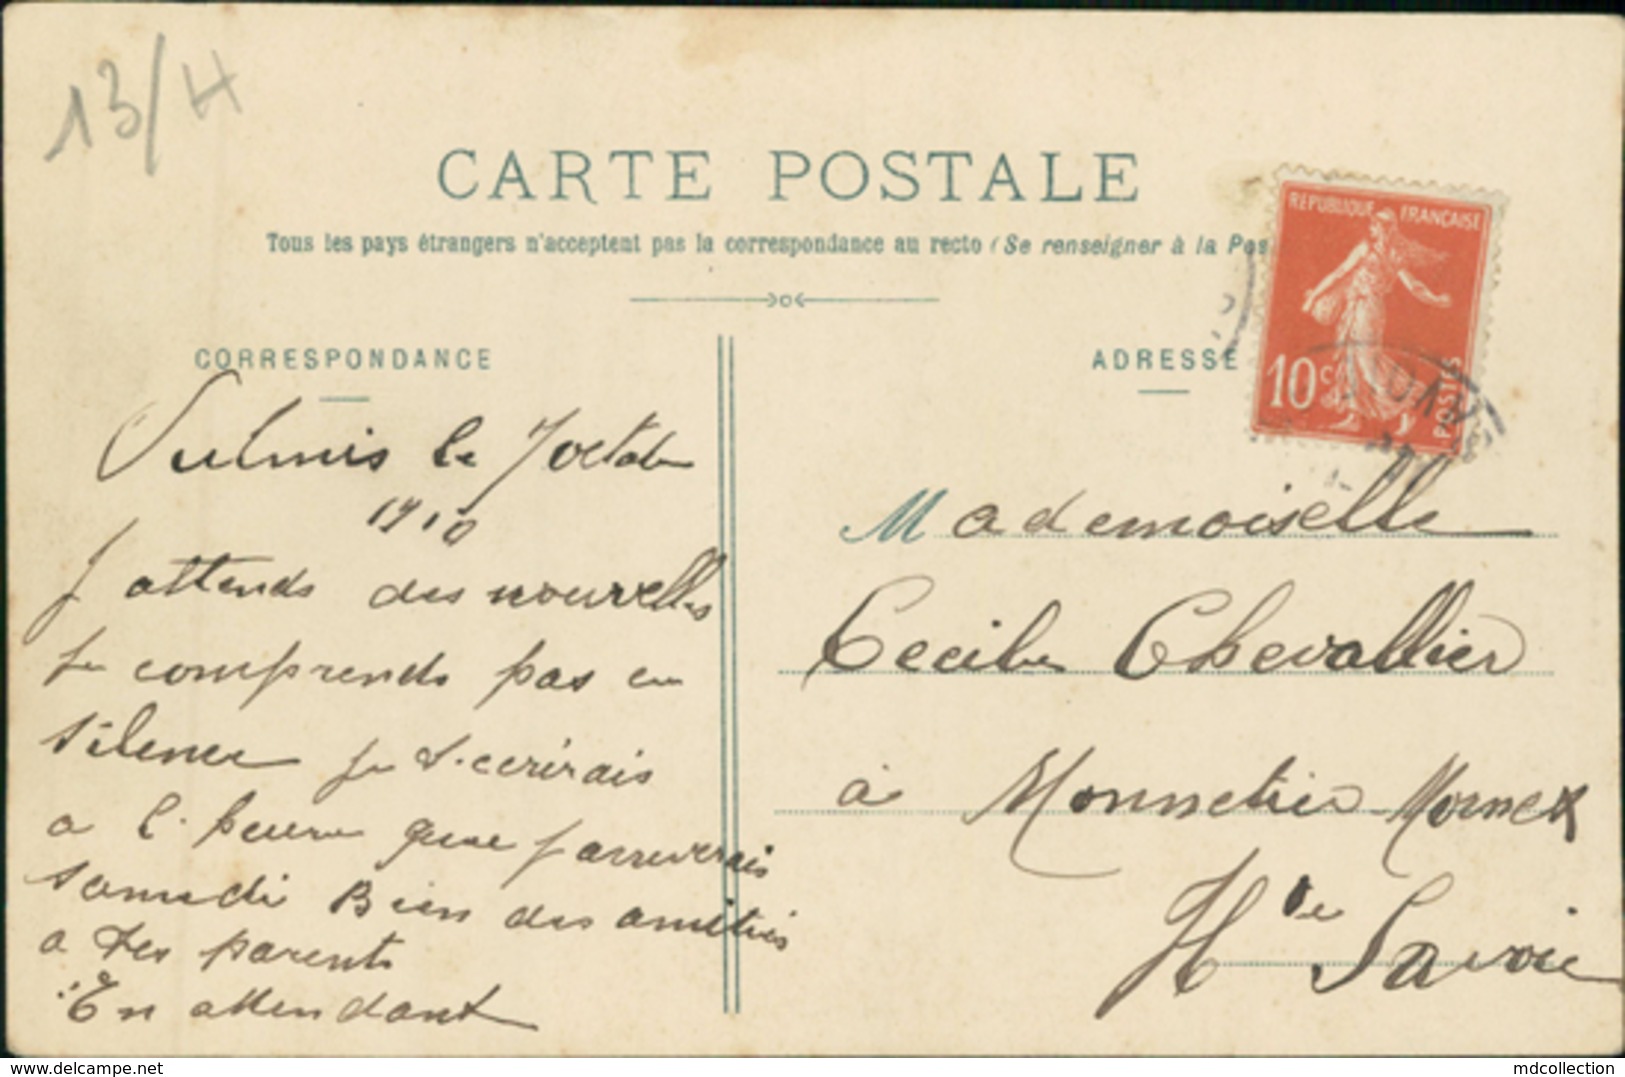 13/H
CARTE POSTALE
Tous les pays étrangers n'acceptent pas la correspondance au recto (Se renseigner à la Pos
REPUBLIQUE FRANÇAISE
10c
POSTES
CORRESPONDANCE
le 7 octobre
1910
J attends des nouvelles
je comprends pas ce
silence je t. ecrirais
a l. heure que j arriverais
samedi Bien des amitiés
a tes parents
En attendant
ADRESSE
Mademoiselle
Cecile Chevallier
à Monnetier-Mornex
Hte Savoie
delcampe.net
mdcollection